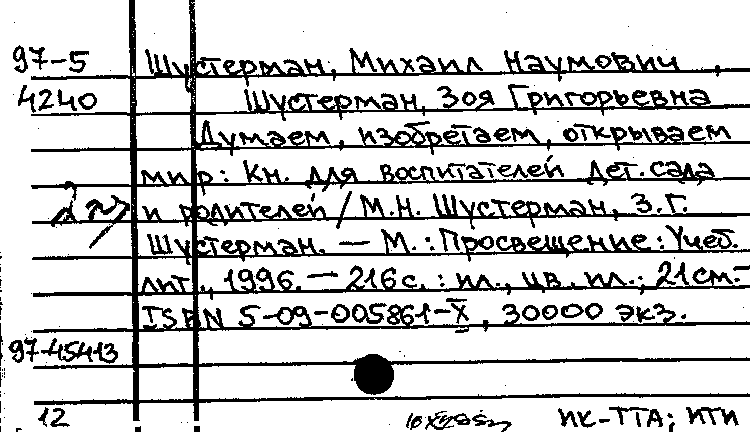 97-5 Шустерман, Михаил Наумович,
4240 Шустерман, Зоя Григорьевна
Думаем, изобретаем, открываем
мир: Кн. для воспитателей дет. сада
и родителей / М.Н. Шустерман, З.Г.
Шустерман. — М.: Просвещение: Учеб.
лит., 1996. — 216 с.: ил., цв. ил.; 21 см. —
ISBN 5-09-005861-X, 30000 экз.
97-45413
12 ИК-ТТА; ИТИ